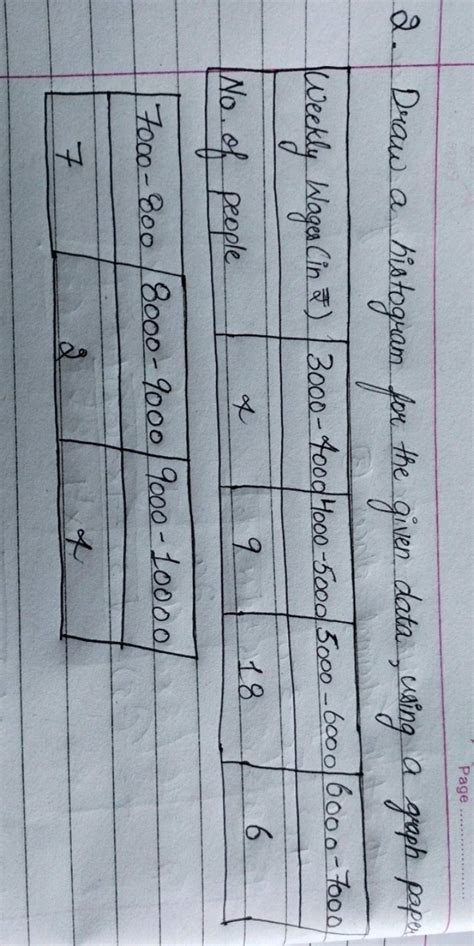 Page ..................
2. Draw a histogram for the given data, using a graph paper
Weekly Wages (in ₹) 3000-4000 4000-5000 5000-6000 6000-7000
No. of people 4 9 18 6
7000-800 8000-9000 9000-10000
7 2 4